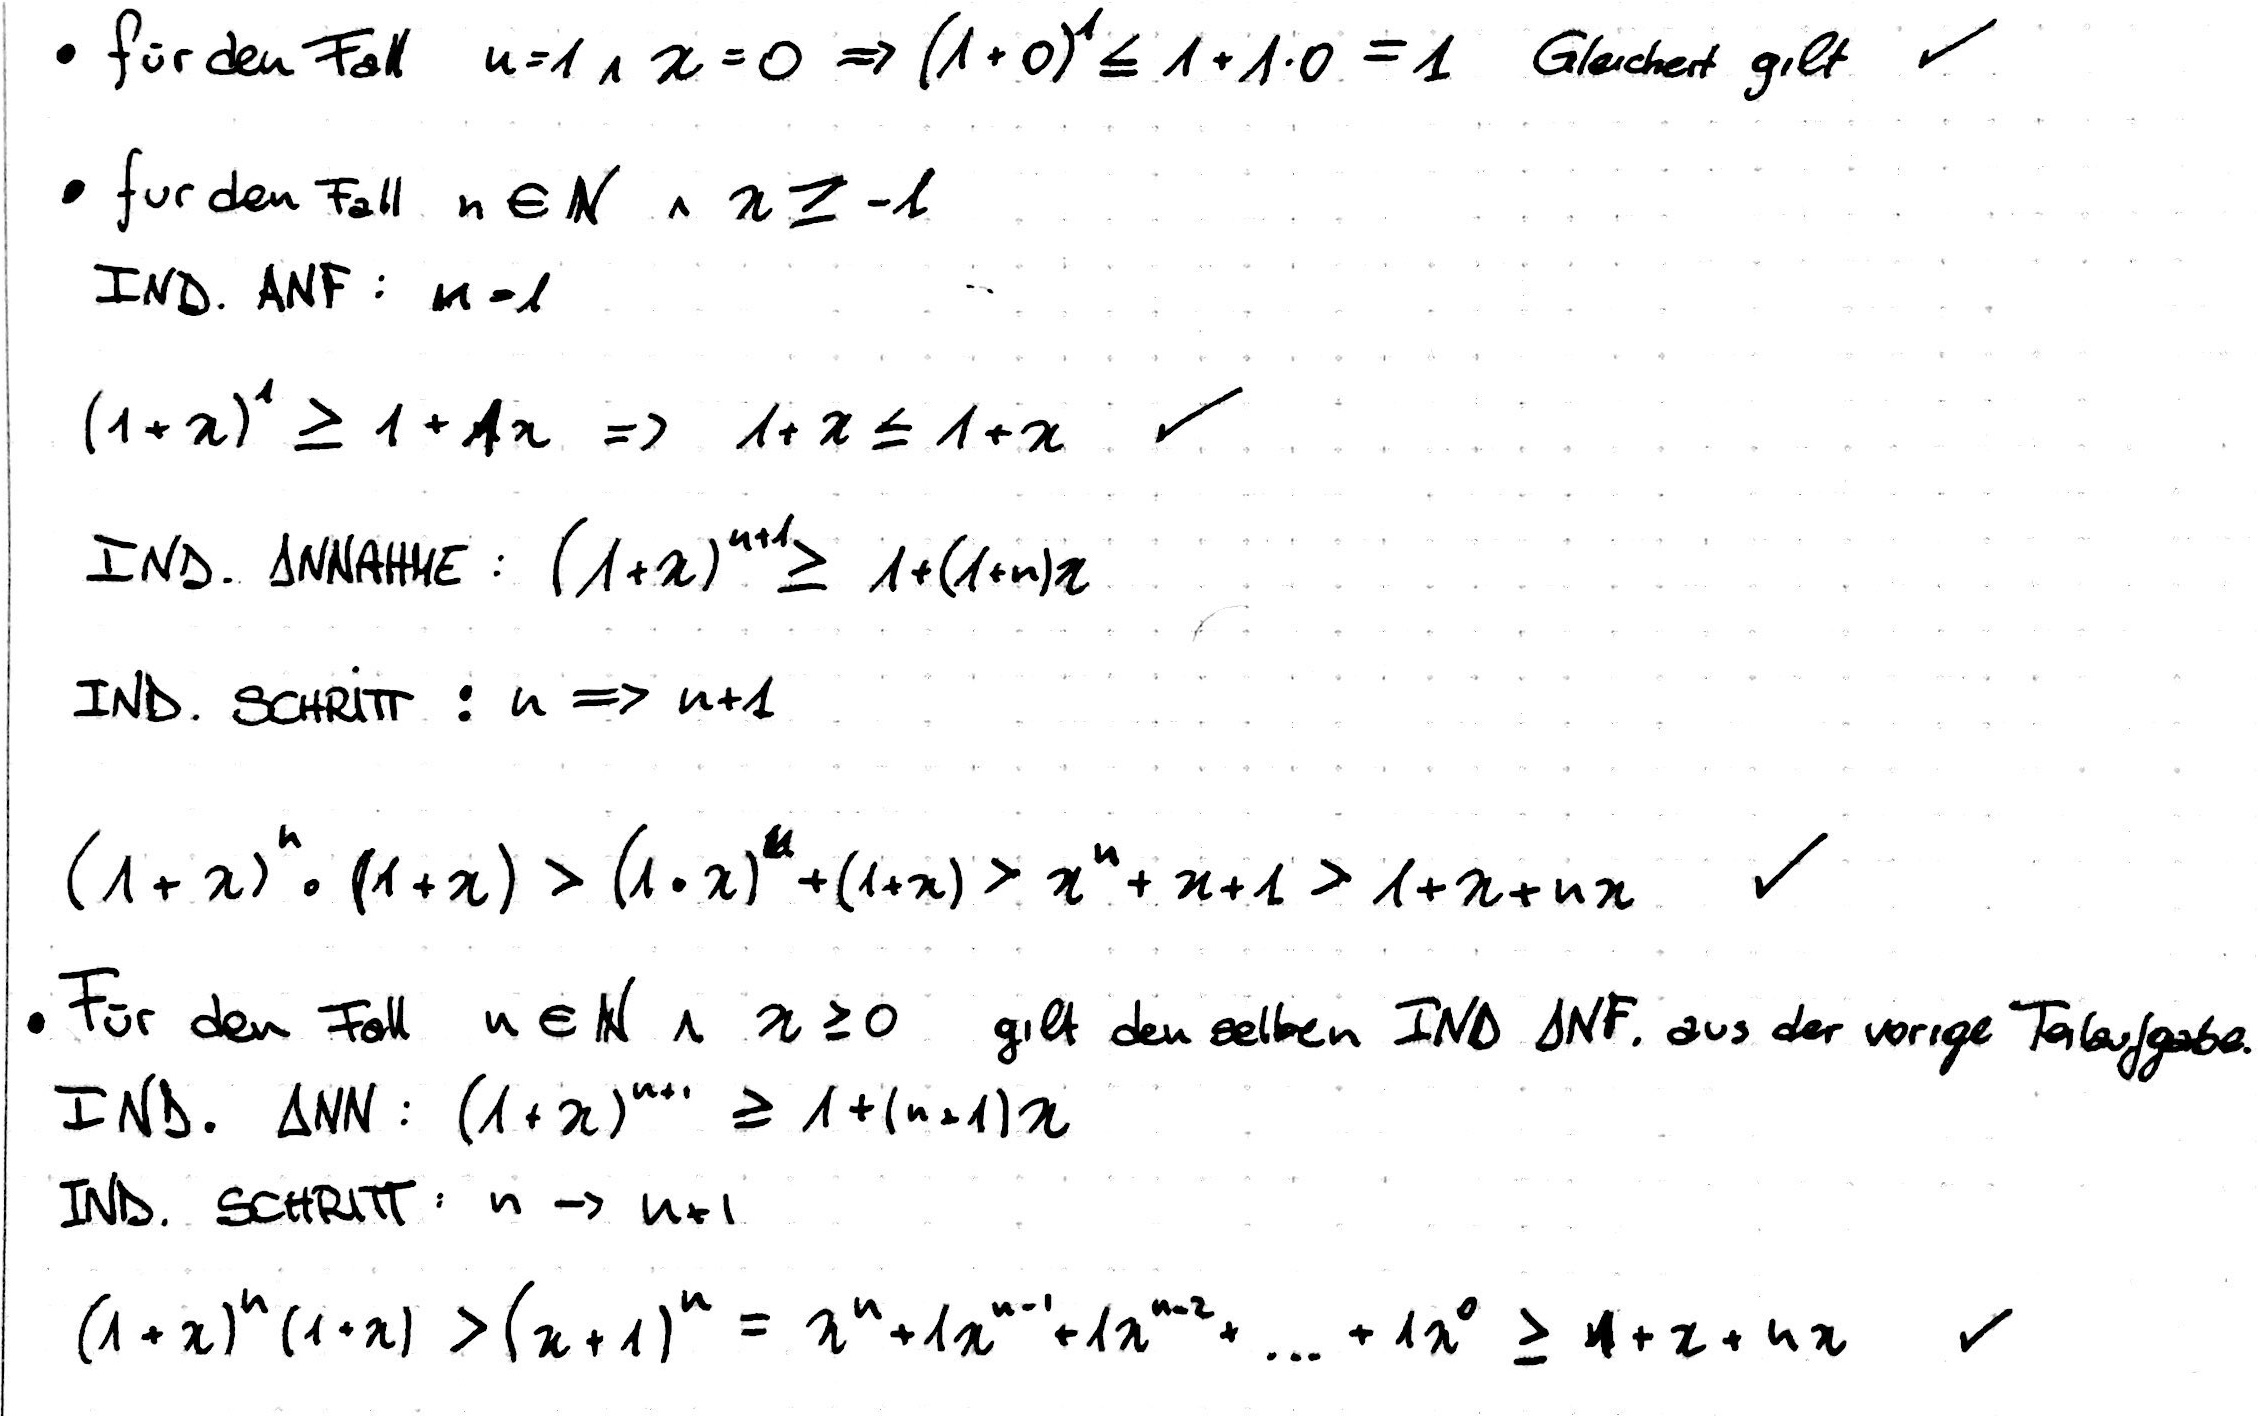 • für den Fall n=1 ∧ x=0 => (1+0)¹ ≤ 1+1·0 = 1 Gleichert gilt ✓
• fur den Fall n ∈ ℕ ∧ x ≥ -1
IND. ANF: n=1
(1+x)¹ ≥ 1+1x => 1+x ≤ 1+x ✓
IND. ANNAHME: (1+x)ⁿ⁺¹ ≥ 1+(1+n)x
IND. SCHRITT: n => n+1
(1+x)ⁿ·(1+x) > (1·x)ⁿ+(1+x) > xⁿ+x+1 > 1+x+nx ✓
• Für den Fall n ∈ ℕ ∧ x ≥ 0 gilt den selben IND ANF. aus der vorige Teilaufgabe.
IND. ANN: (1+x)ⁿ⁺¹ ≥ 1+(n+1)x
IND. SCHRITT: n -> n+1
(1+x)ⁿ(1+x) > (x+1)ⁿ = xⁿ+1xⁿ⁻¹+1xⁿ⁻²+ ... +1x⁰ ≥ 1+x+nx ✓